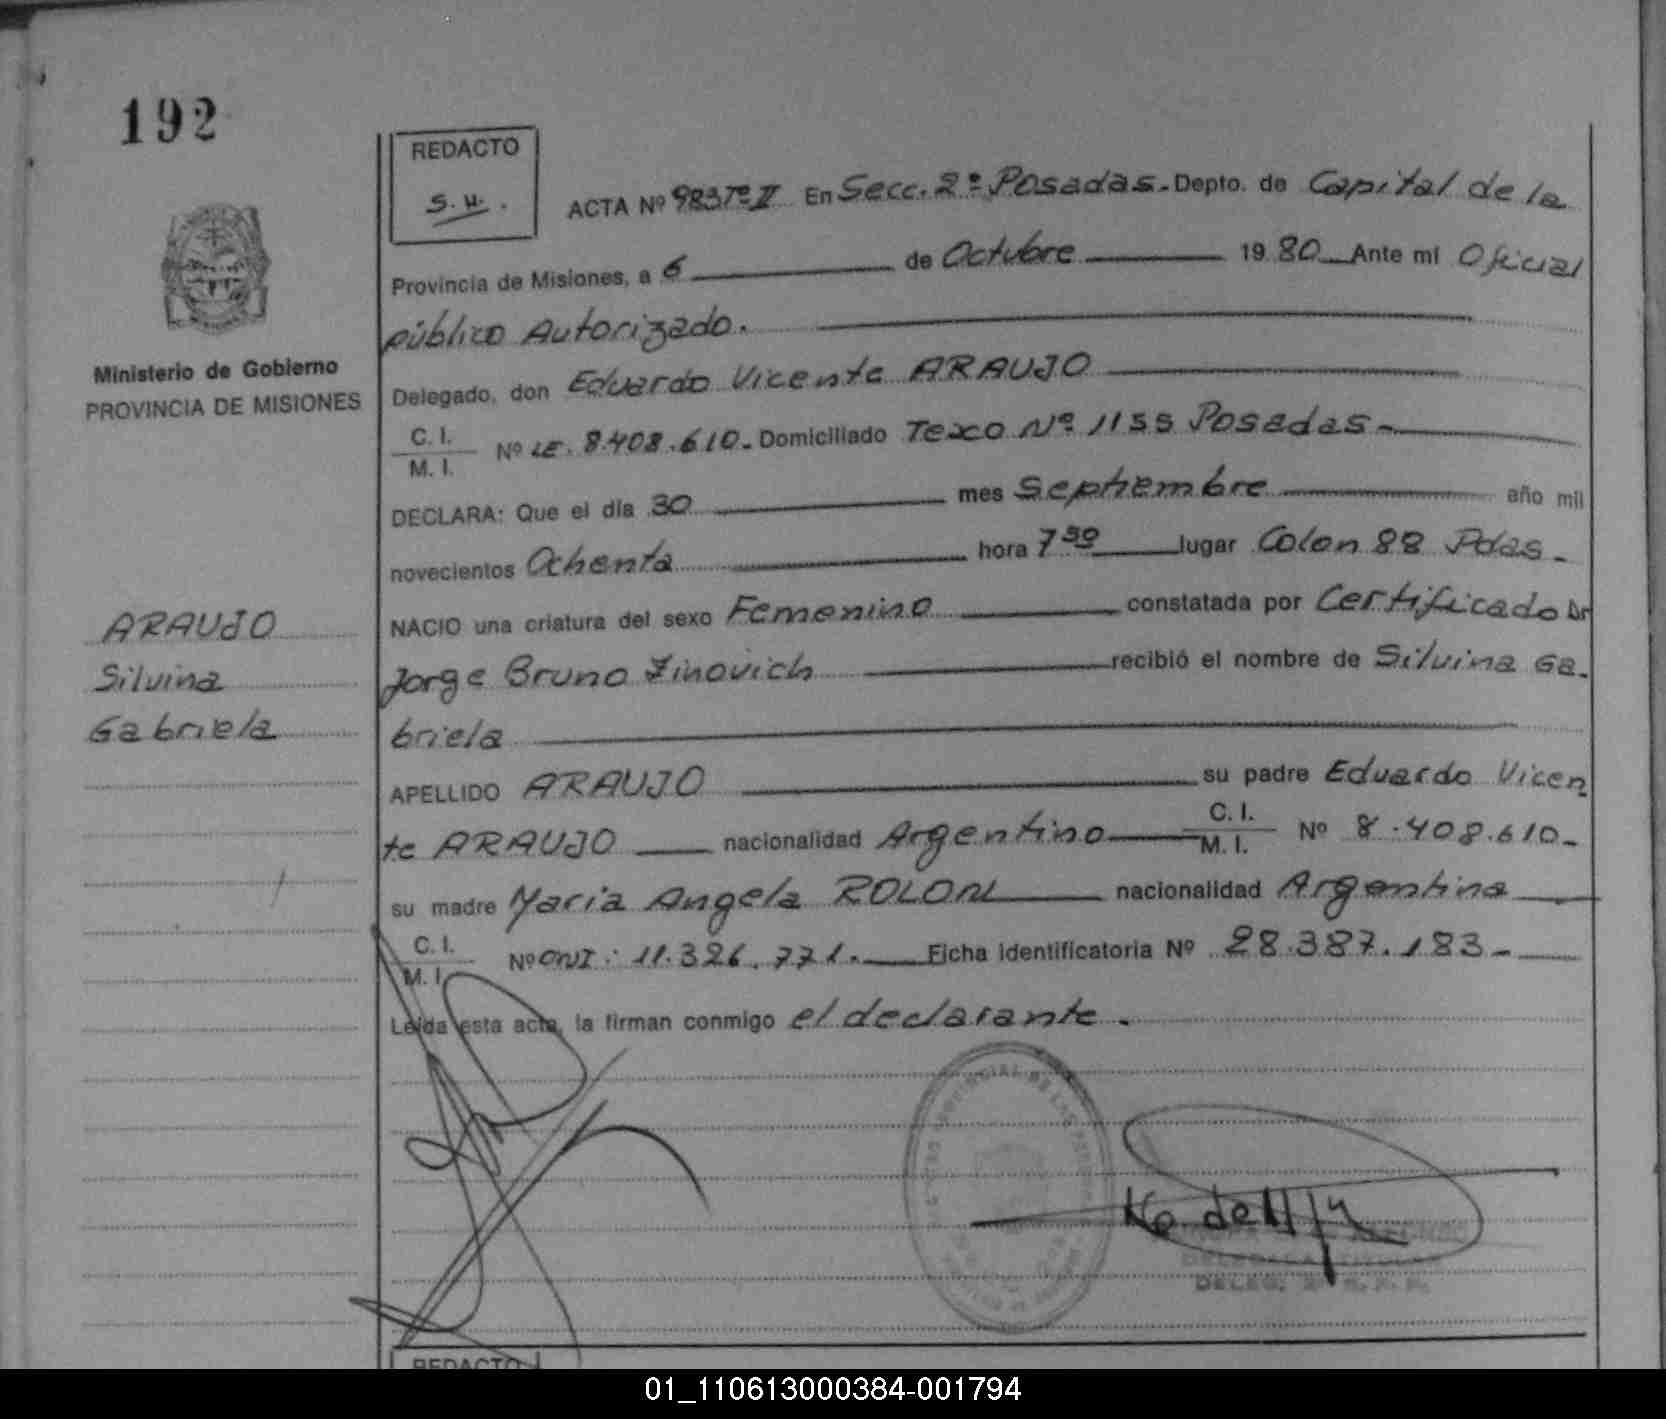 192
REDACTO
S.U.
ACTA Nº 983Tº II En Secc. 2º Posadas.- Depto. de Capital de la
Provincia de Misiones, a 6 de Octubre 1980 Ante mi Oficial
público Autorizado.
Delegado, don Eduardo Vicente ARAUJO
C. I.
M. I.
Nº LE. 8.408.610.- Domiciliado Texco Nº 1155 Posadas -
DECLARA: Que el día 30 mes Septiembre año mil
novecientos Ochenta hora 7 30 lugar Colon 88 Pdas -
NACIO una criatura del sexo Femenino constatada por Certificado Dr
Jorge Bruno Zinovich recibió el nombre de Silvina Ga-
briela
APELLIDO ARAUJO su padre Eduardo Vicen
te ARAUJO nacionalidad Argentino C. I.
M. I.
Nº 8.408.610-
su madre Maria Angela ROLON nacionalidad Argentina
C. I.
M. I.
Nº DNI: 11.326.771.- Ficha identificatoria Nº 28.387.183-
Leída esta acta, la firman conmigo el declarante.
Ministerio de Gobierno
PROVINCIA DE MISIONES
ARAUJO
Silvina
Gabriela
REDACTO
01_110613000384-001794